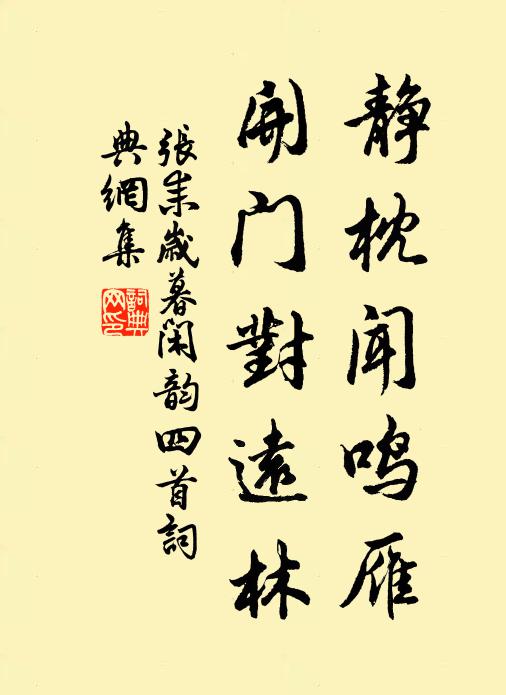 静枕闻鸣雁
開门對遠林
張耒歲暮閑韵四首詞
典網集
詞典
网印